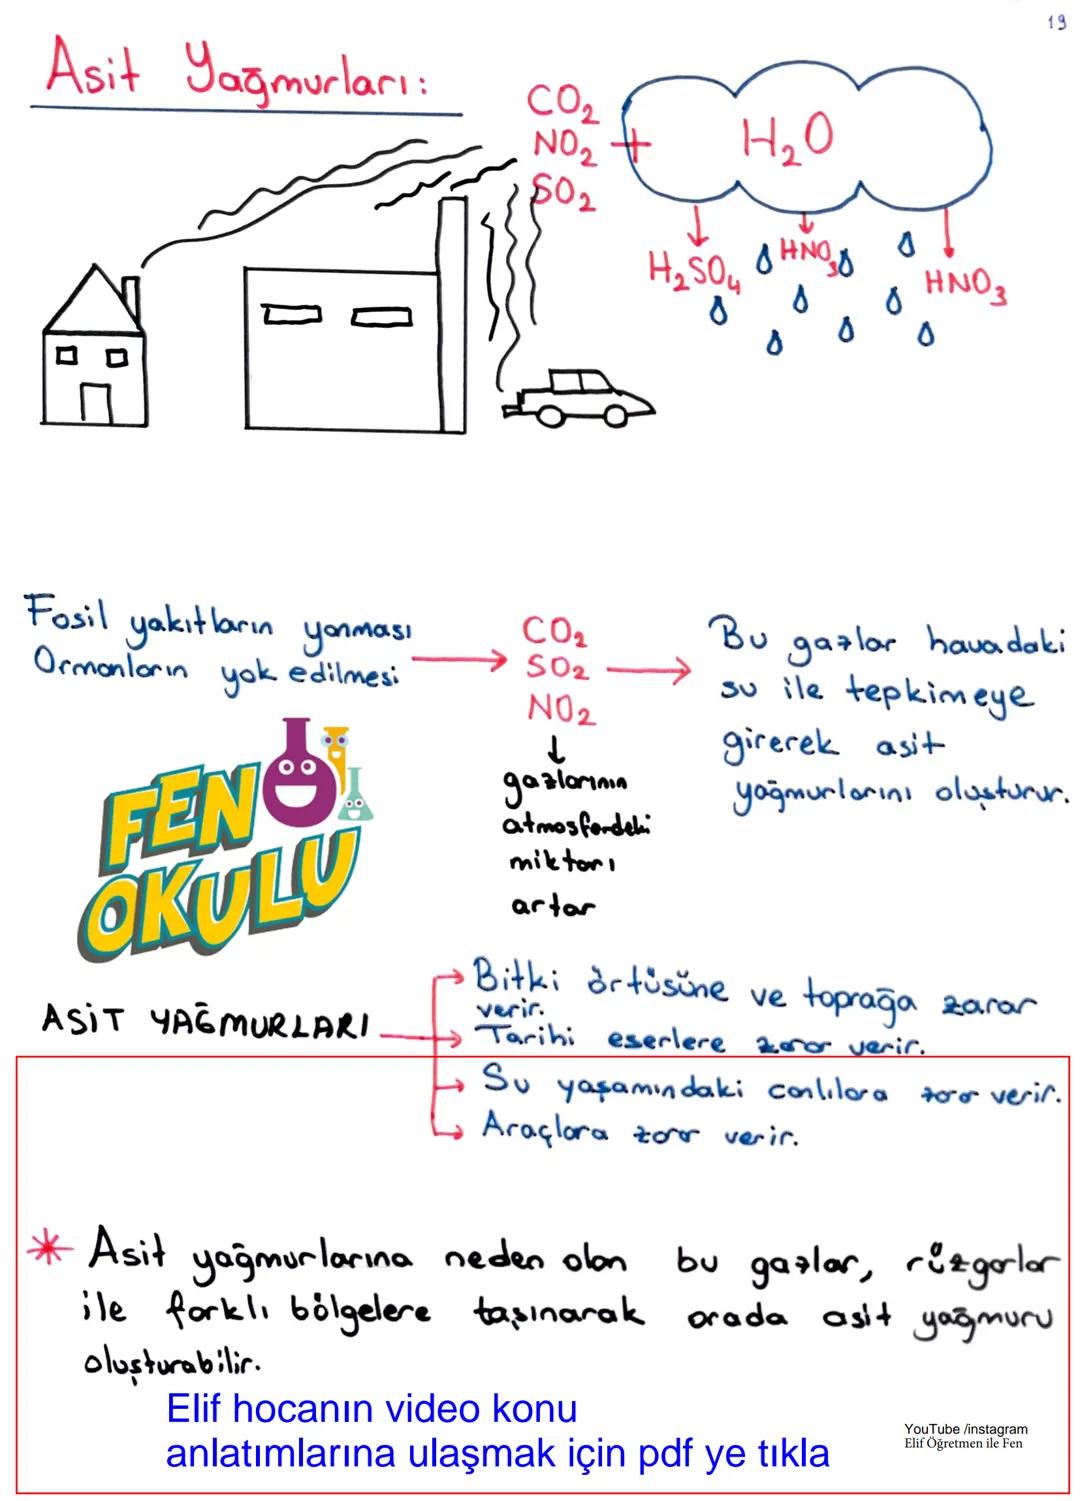 19
Asit Yağmurları:
CO₂
NO₂ + H₂O
SO₂
H₂SO₄ HNO₃ HNO₃
Fosil yakıtların yanması
Ormanların yok edilmesi
CO₂
SO₂
NO₂
gazlarının
atmosferdeki
miktarı
artar
Bu gazlar havadaki
su ile tepkimeye
girerek asit
yağmurlarını oluşturur.
FEN
OKULU
ASİT YAĞMURLARI
Bitki örtüsüne ve toprağa zarar
verir.
Tarihi eserlere zarar verir.
Su yaşamındaki canlılara zarar verir.
Araçlara zarar verir.
* Asit yağmurlarına neden olan bu gazlar, rüzgarlar
ile farklı bölgelere taşınarak orada asit yağmuru
oluşturabilir.
Elif hocanın video konu
anlatımlarına ulaşmak için pdf ye tıkla
YouTube /instagram
Elif Öğretmen ile Fen